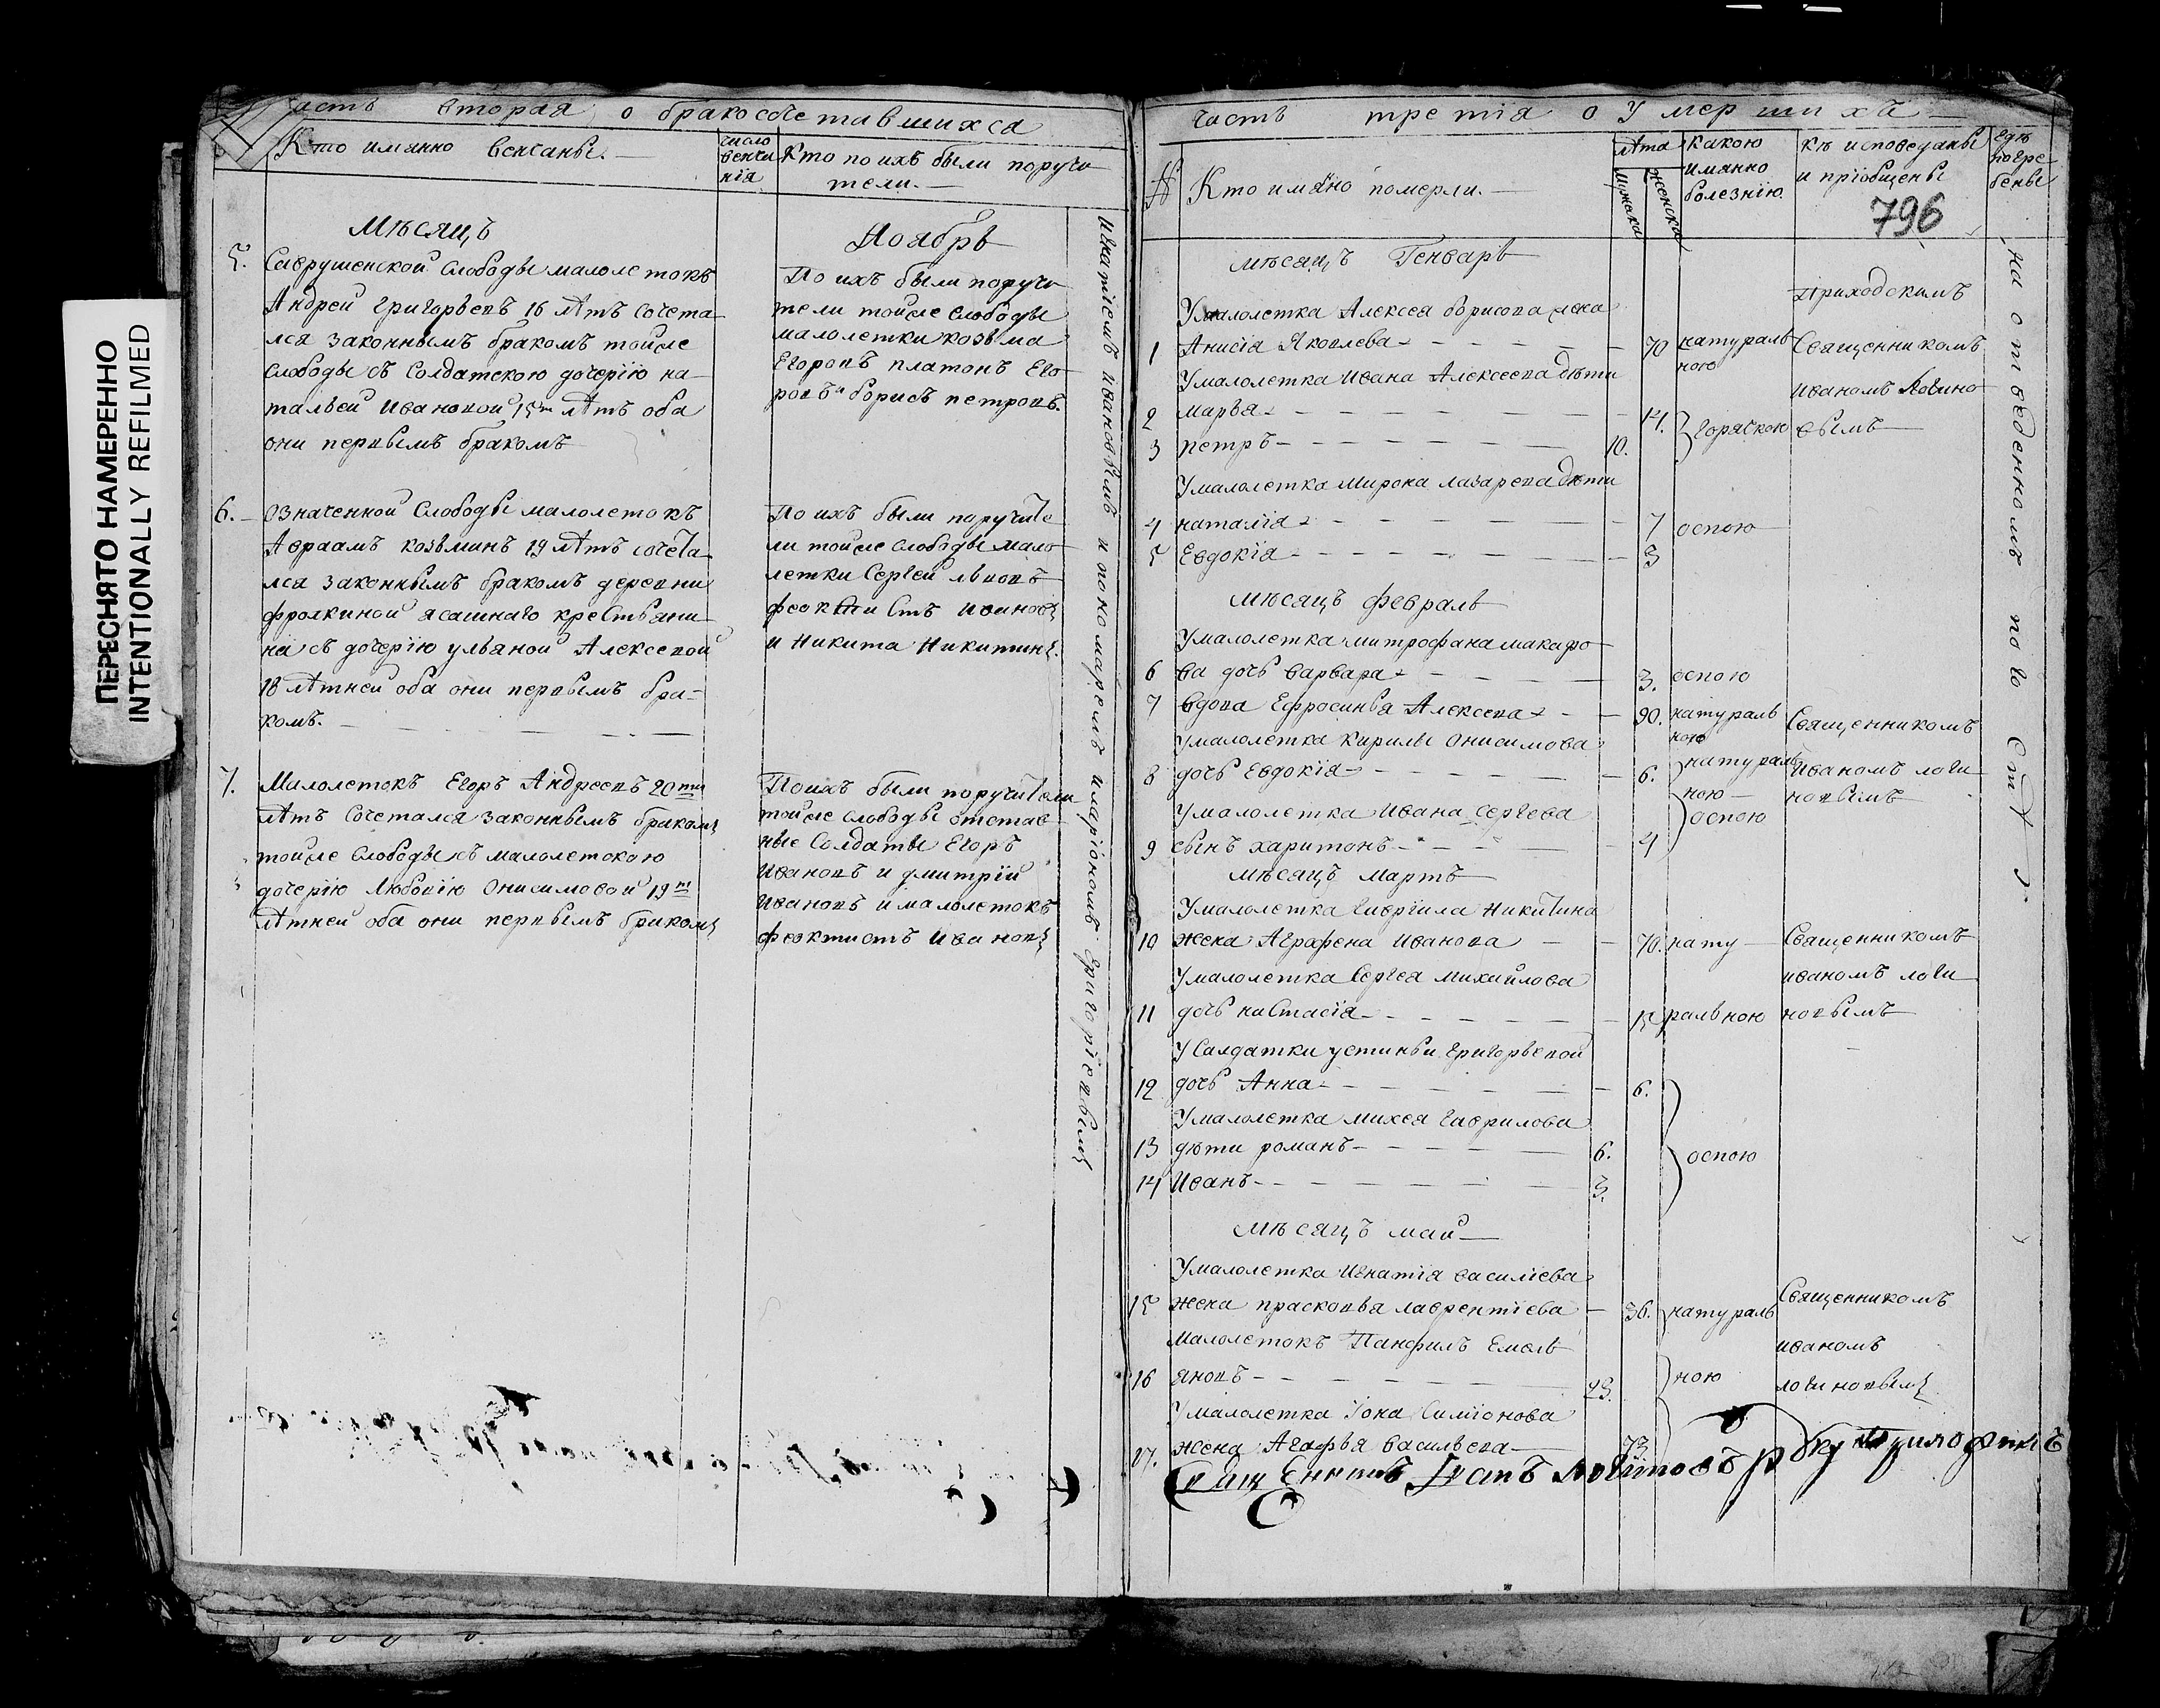 ПЕРЕСНЯТО НАМЕРЕННО
INTENTIONALLY REFILMED
часть вторая о бракосочетавшихса
Кто имянно венчаны.
число венчанiя
Кто по ихъ были поручи
тели.
Мѣсяцъ
Ноябрь
5. Саврушенской слободы малолетокъ
Андрей григорьевъ 16 лѣтъ сочета
лся законнымъ бракомъ тойже
слободы съ Солдатскою дочерiю на
тальей Ивановой 15 лѣтъ оба
они первымъ бракомъ
По ихъ были поручи
тели тойже слободы
малолетки козьма
Егоровъ платонъ Его
ровъ и борисъ петровъ.
6. Означенной слободы малолетокъ
Авраамъ козьминъ 19 лѣтъ сочета
лся законнымъ бракомъ деревни
фролкиной ясашнаго крестьяни
на съ дочерiю ульяной Алексевой
18 лѣтней оба они первымъ бра
комъ.
По ихъ были поручите
ли тойже слободы мало
летки Сергей львовъ
феоктистъ Ивановъ
и Никита Никитинъ.
7. Малолетокъ Егоръ Андреевъ 20ти
лѣтъ сочетался законнымъ бракомъ
тойже слободы съ малолеткою
дочерiю Любовiю Онисимовой 19ти
лѣтней оба они первымъ бракомъ
По ихъ были поручители
тойже слободы отстав
ные Солдаты Егоръ
Ивановъ и дмитрiй
Ивановъ и малолетокъ
феоктистъ Ивановъ
Игнатiемъ Ивановымъ и пономаремъ иларiономъ Григорiевымъ
796
часть третiя о Умершихъ
№
Кто имяно померли.
лѣта
мужска
женска
какою
имянно
болезнiю
кѣ исповеданы
и прiобщены
где
погре
бены
мѣсяцъ Генварь
У малолетка Алексея борисова жена
1 Анисiя Яковлева 70 натураль
ною
Приходскимъ
Священникомъ
Иваномъ Логино
вымъ
У малолетка Ивана Алексеева дѣти
2 марья 14.
3 петръ 10. горячкою
У малолетка Мирона лазарева дѣти
4 наталiя 7 оспою
5 Евдокiя 3
мѣсяцъ февраль
У малолетка митрофана макаро
6 ва дочь варвара 3. оспою
7 вдова Ефросинья Алексеева 90. натураль
ною
Священникомъ
Иваномъ логи
новымъ
У малолетка кирилы Онисимова
8 дочь Евдокiя 6. натураль
ною
У малолетка Ивана Сергеева
9 сынъ харитонъ 4 оспою
мѣсяцъ Мартъ
У малолетка Гаврiила Никитина
10 жена Аграфена Иванова 70. нату
Священникомъ
Иваномъ логи
новымъ
У малолетка Сергея михайлова
11 дочь настасiя 15 ральною
У Салдатки устиньи Григорьевой
12 дочь Анна 6.
У малолетка михея Гаврилова
13 дѣти романъ 6. оспою
14 Иванъ 3.
мѣсяцъ май
У малолетка Игнатiя василiева
15 жена прасковья лаврентiева 36. натураль
Священникомъ
Иваномъ
логиновымъ
малолетокъ Панфилъ Емель
16 яновъ 23. ною
У малолетка Iона Симiонова
17. жена Агафья васильева 73
на отведенномъ по
Священникъ Iванъ логиновъ руку приложилъ